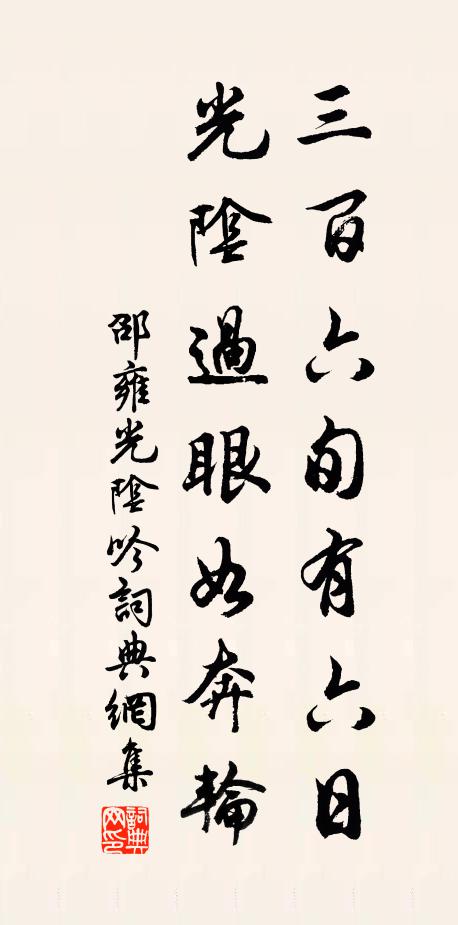 三百六旬有六日
光陰過眼如奔輪
邵雍光陰吟詞典網集
詞典網印